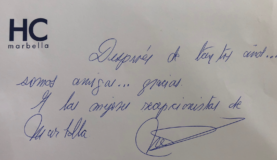 HC
marbella
Después de tantos años...
somos amigas... gracias
Y las mejores recepcionistas de
Marbella